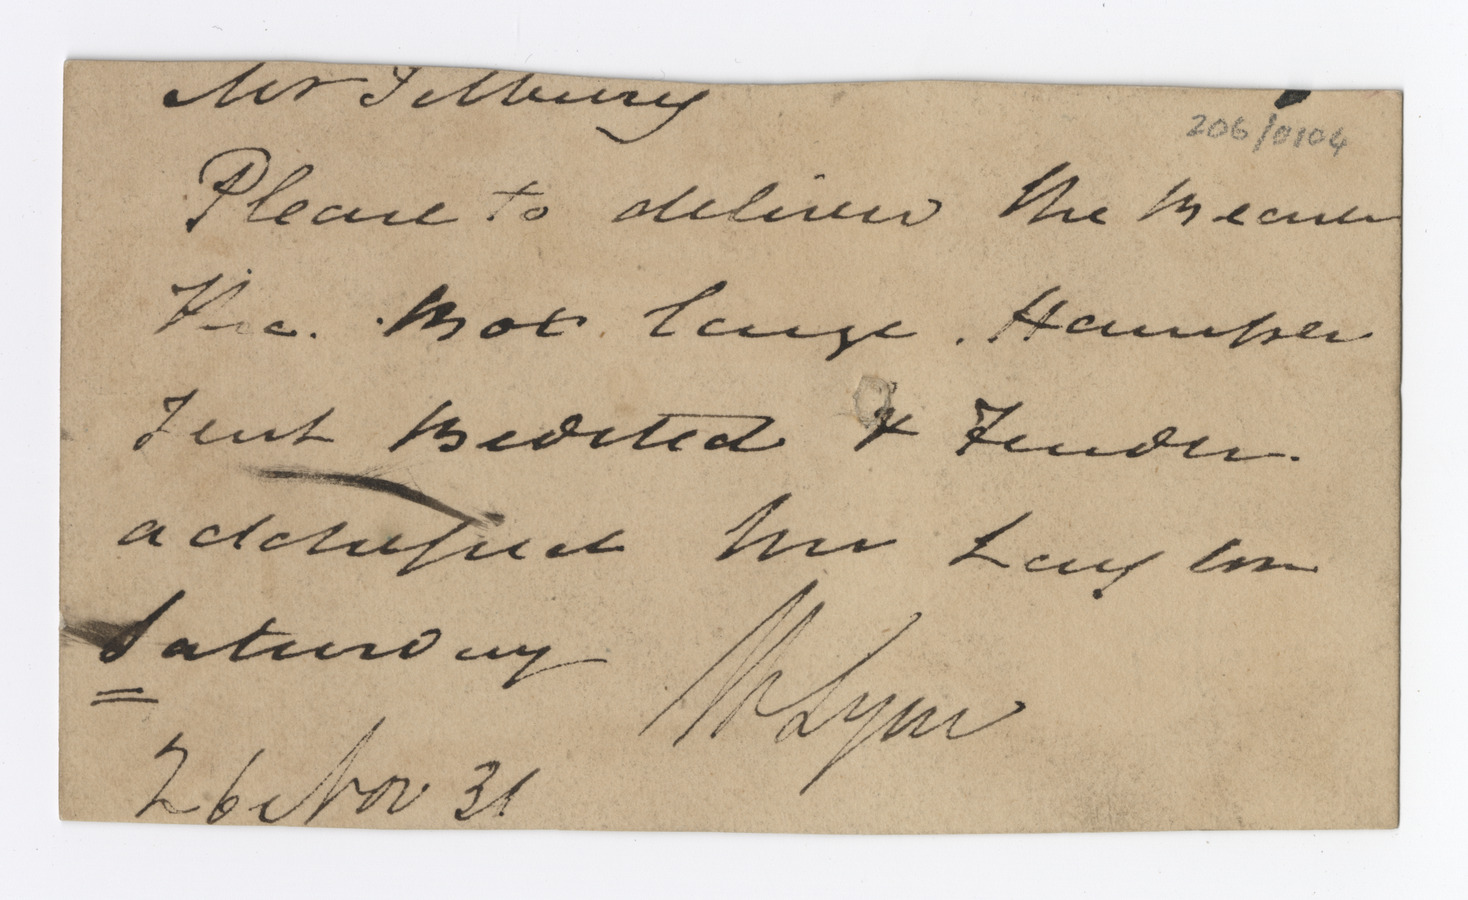 Mr Tilbury
206/0104
Please to deliver the Bearer
the Box large . Hamper
Tent Bedsted & Fender.
addressed Mr Layton
Saturday
W Lyon
26 Nov 31